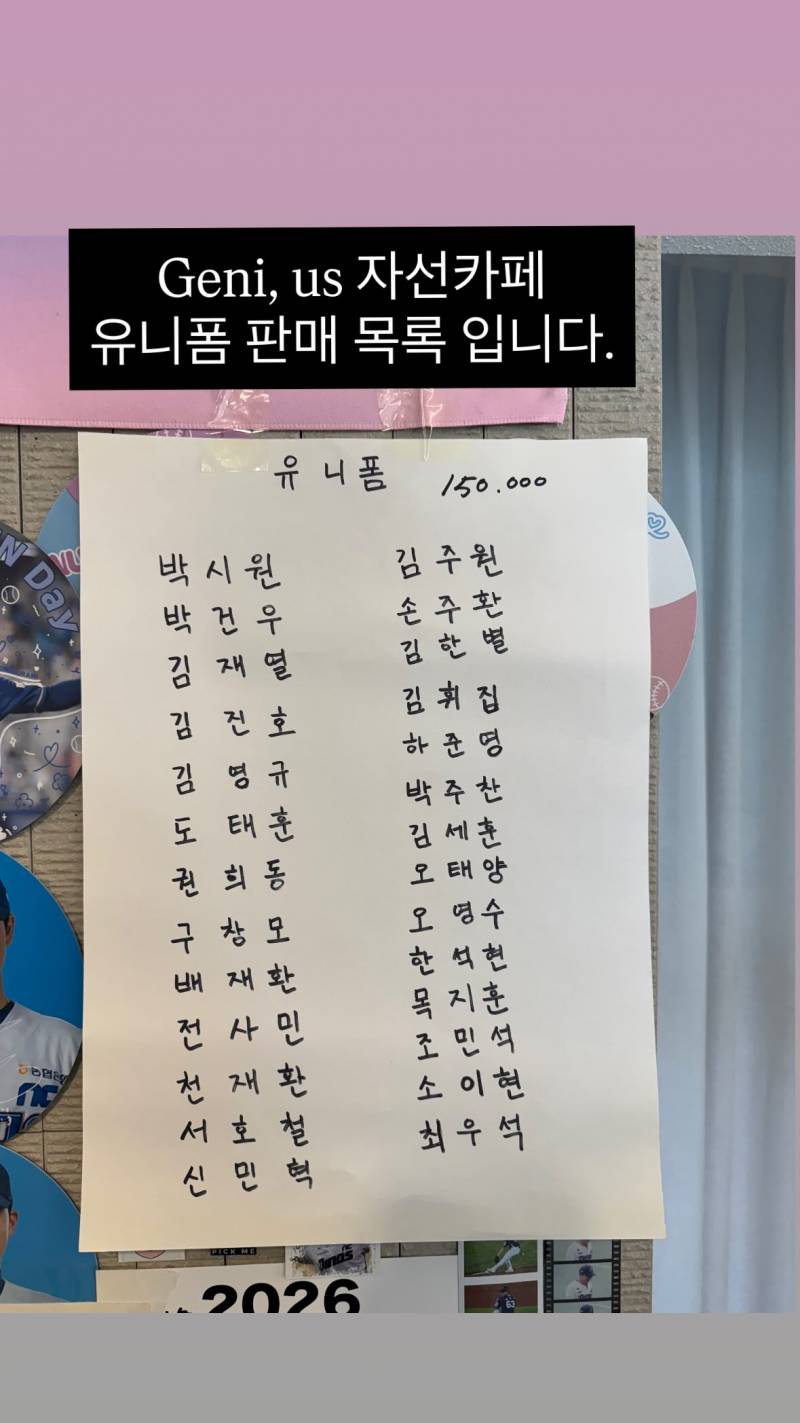 Geni, us 자선카페
유니폼 판매 목록 입니다.
유니폼 150.000
박시원
박건우
김재열
김진호
김영규
도태훈
권희동
구창모
배재환
전사민
천재환
서호철
신민혁
김주원
손주환
김한별
김휘집
하준영
박주찬
김세훈
오태양
오영수
한석현
목지훈
조민석
소이현
최우석
N Day
PICK ME
2026